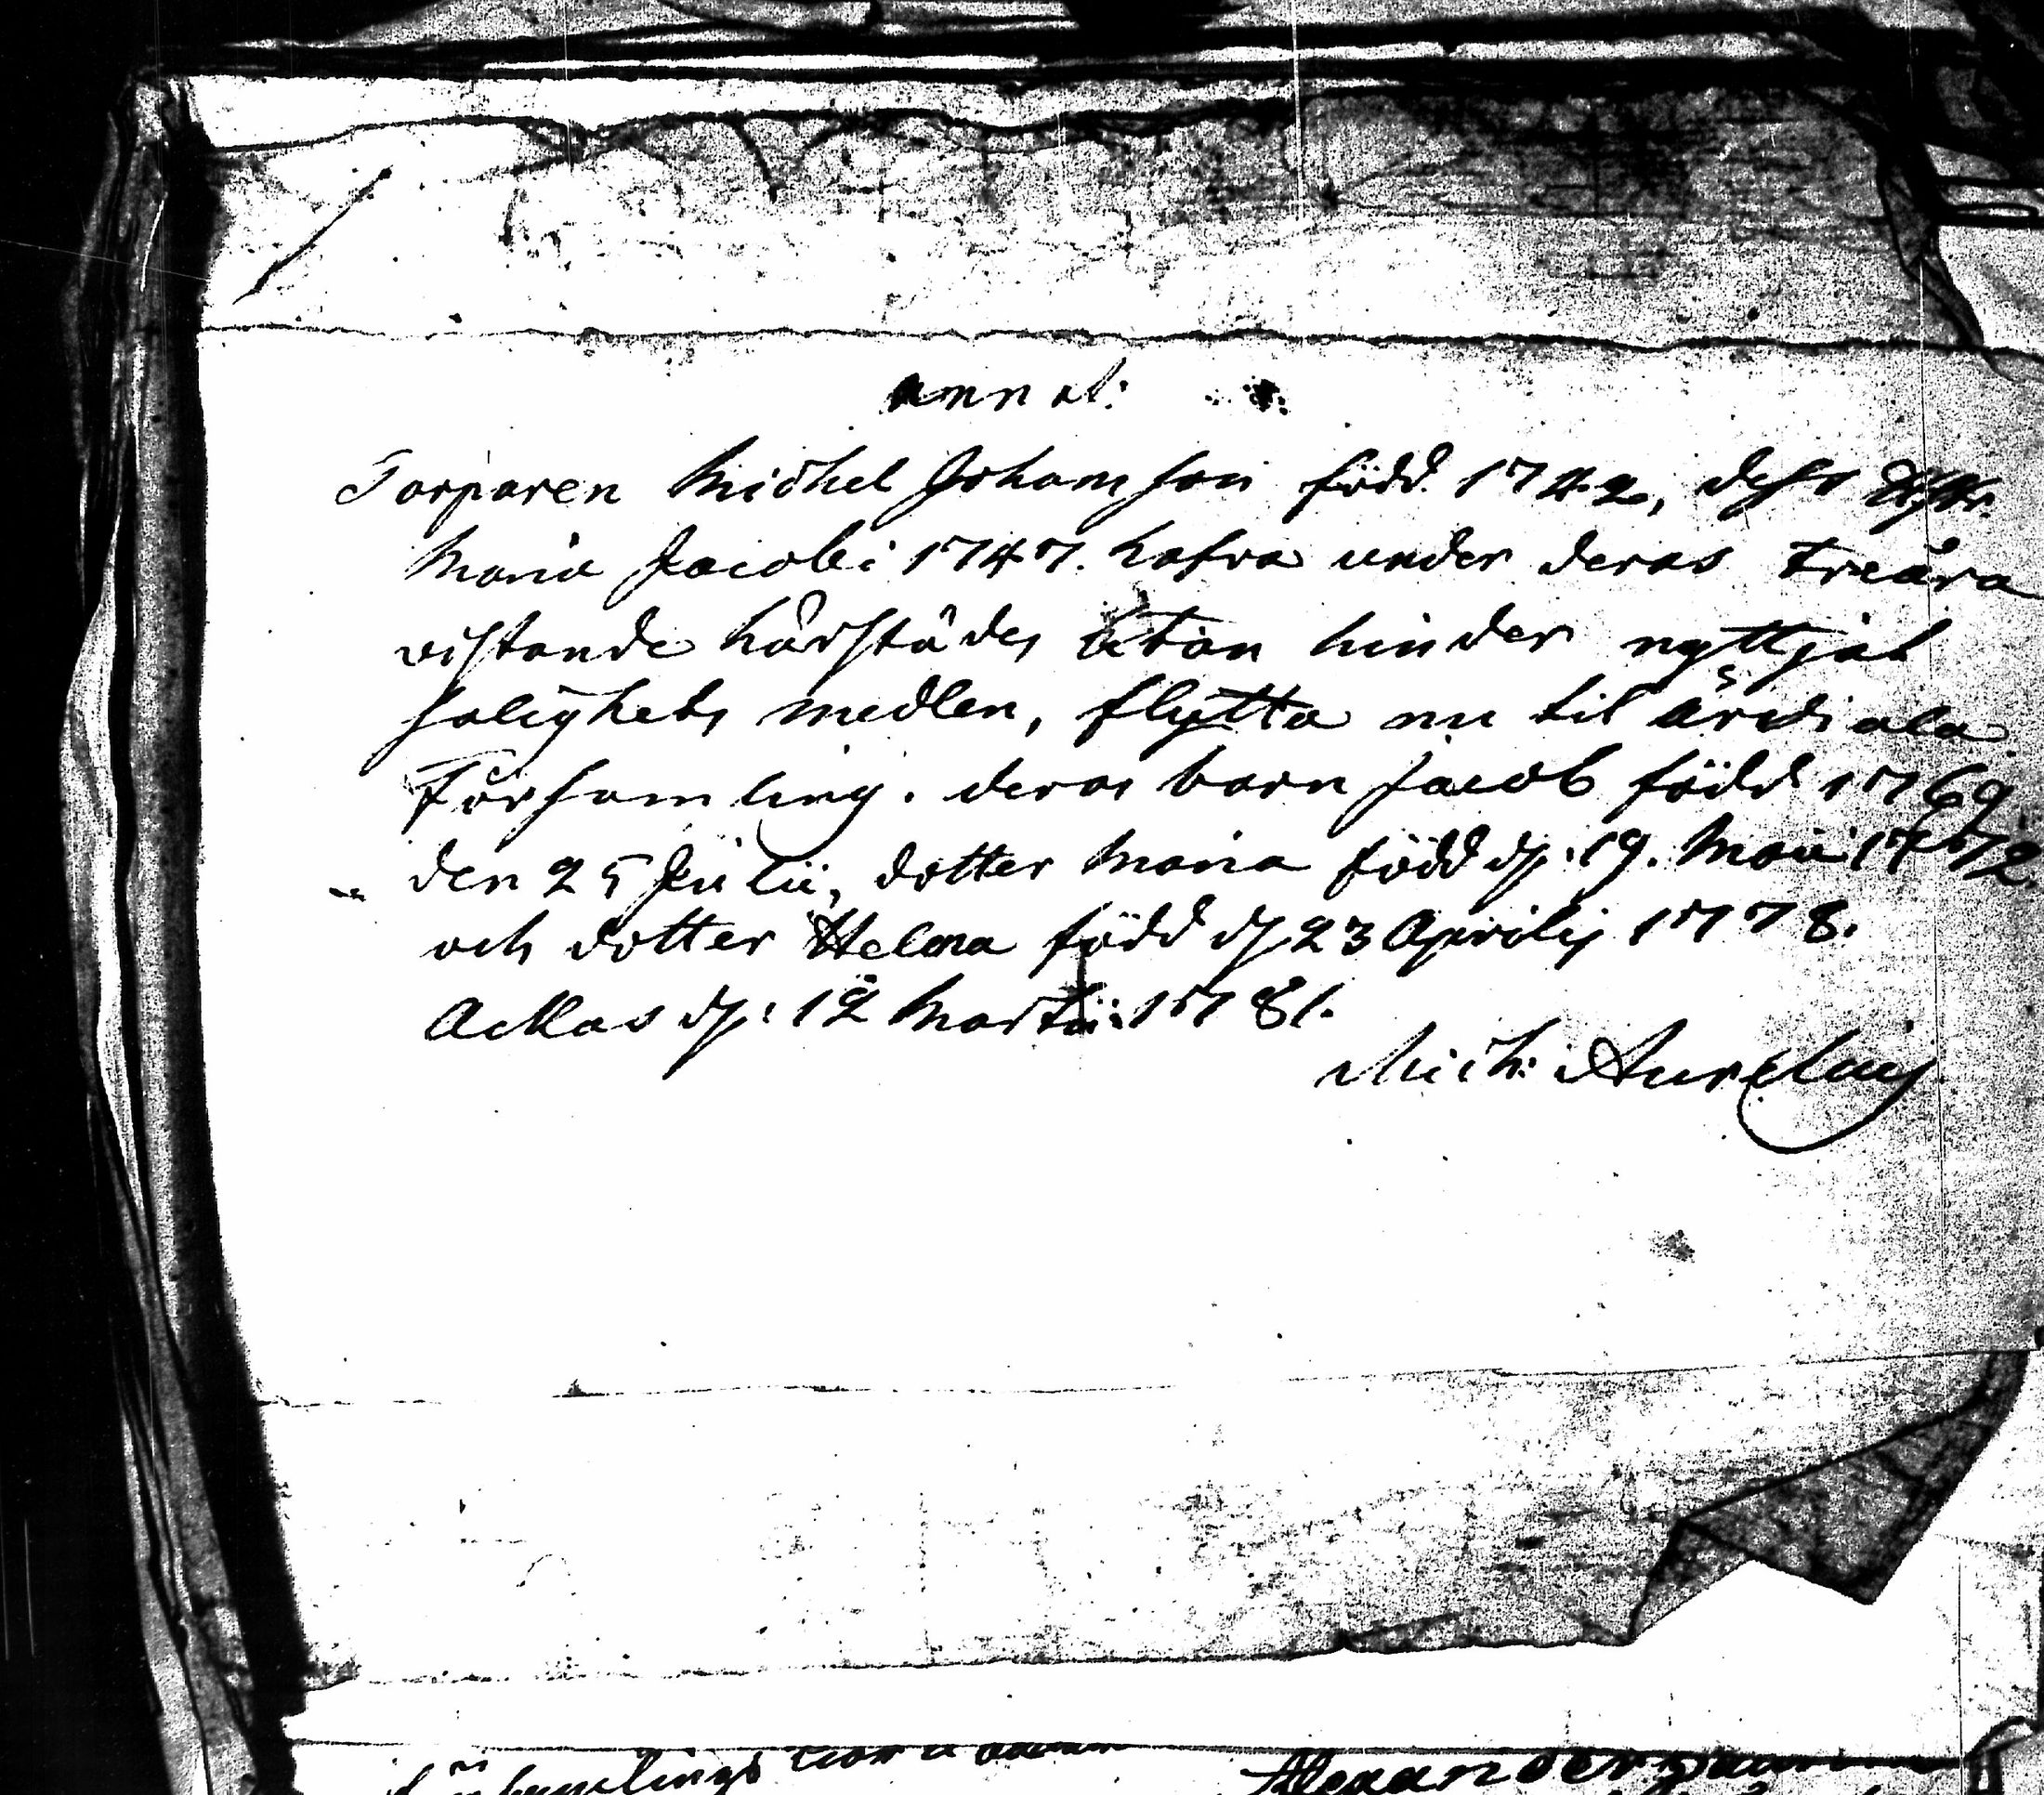 annat:
Torparen Michel Johansson född 1742, dess Hstr.
Maria Jacobi 1747. hafva under deras treåra
vistande härstädes utan hinder nyttjat
salighets medlen, flytta nu til
Församling. deras barn Jacob född 1769
den 25 Julii, dotter Maria född d: 19. Maii 1772.
och dotter Helena född d 23 Aprilis 1778.
d: 12 Martii: 1781.
Mich: Aurelius
församlings
Alexander